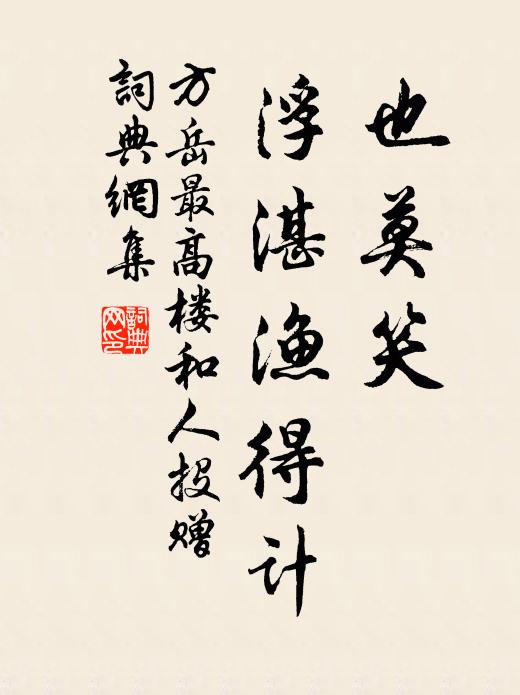 也莫笑
浮湛渔得计
方岳最高楼和人投赠
詞典網集
詞典
网印